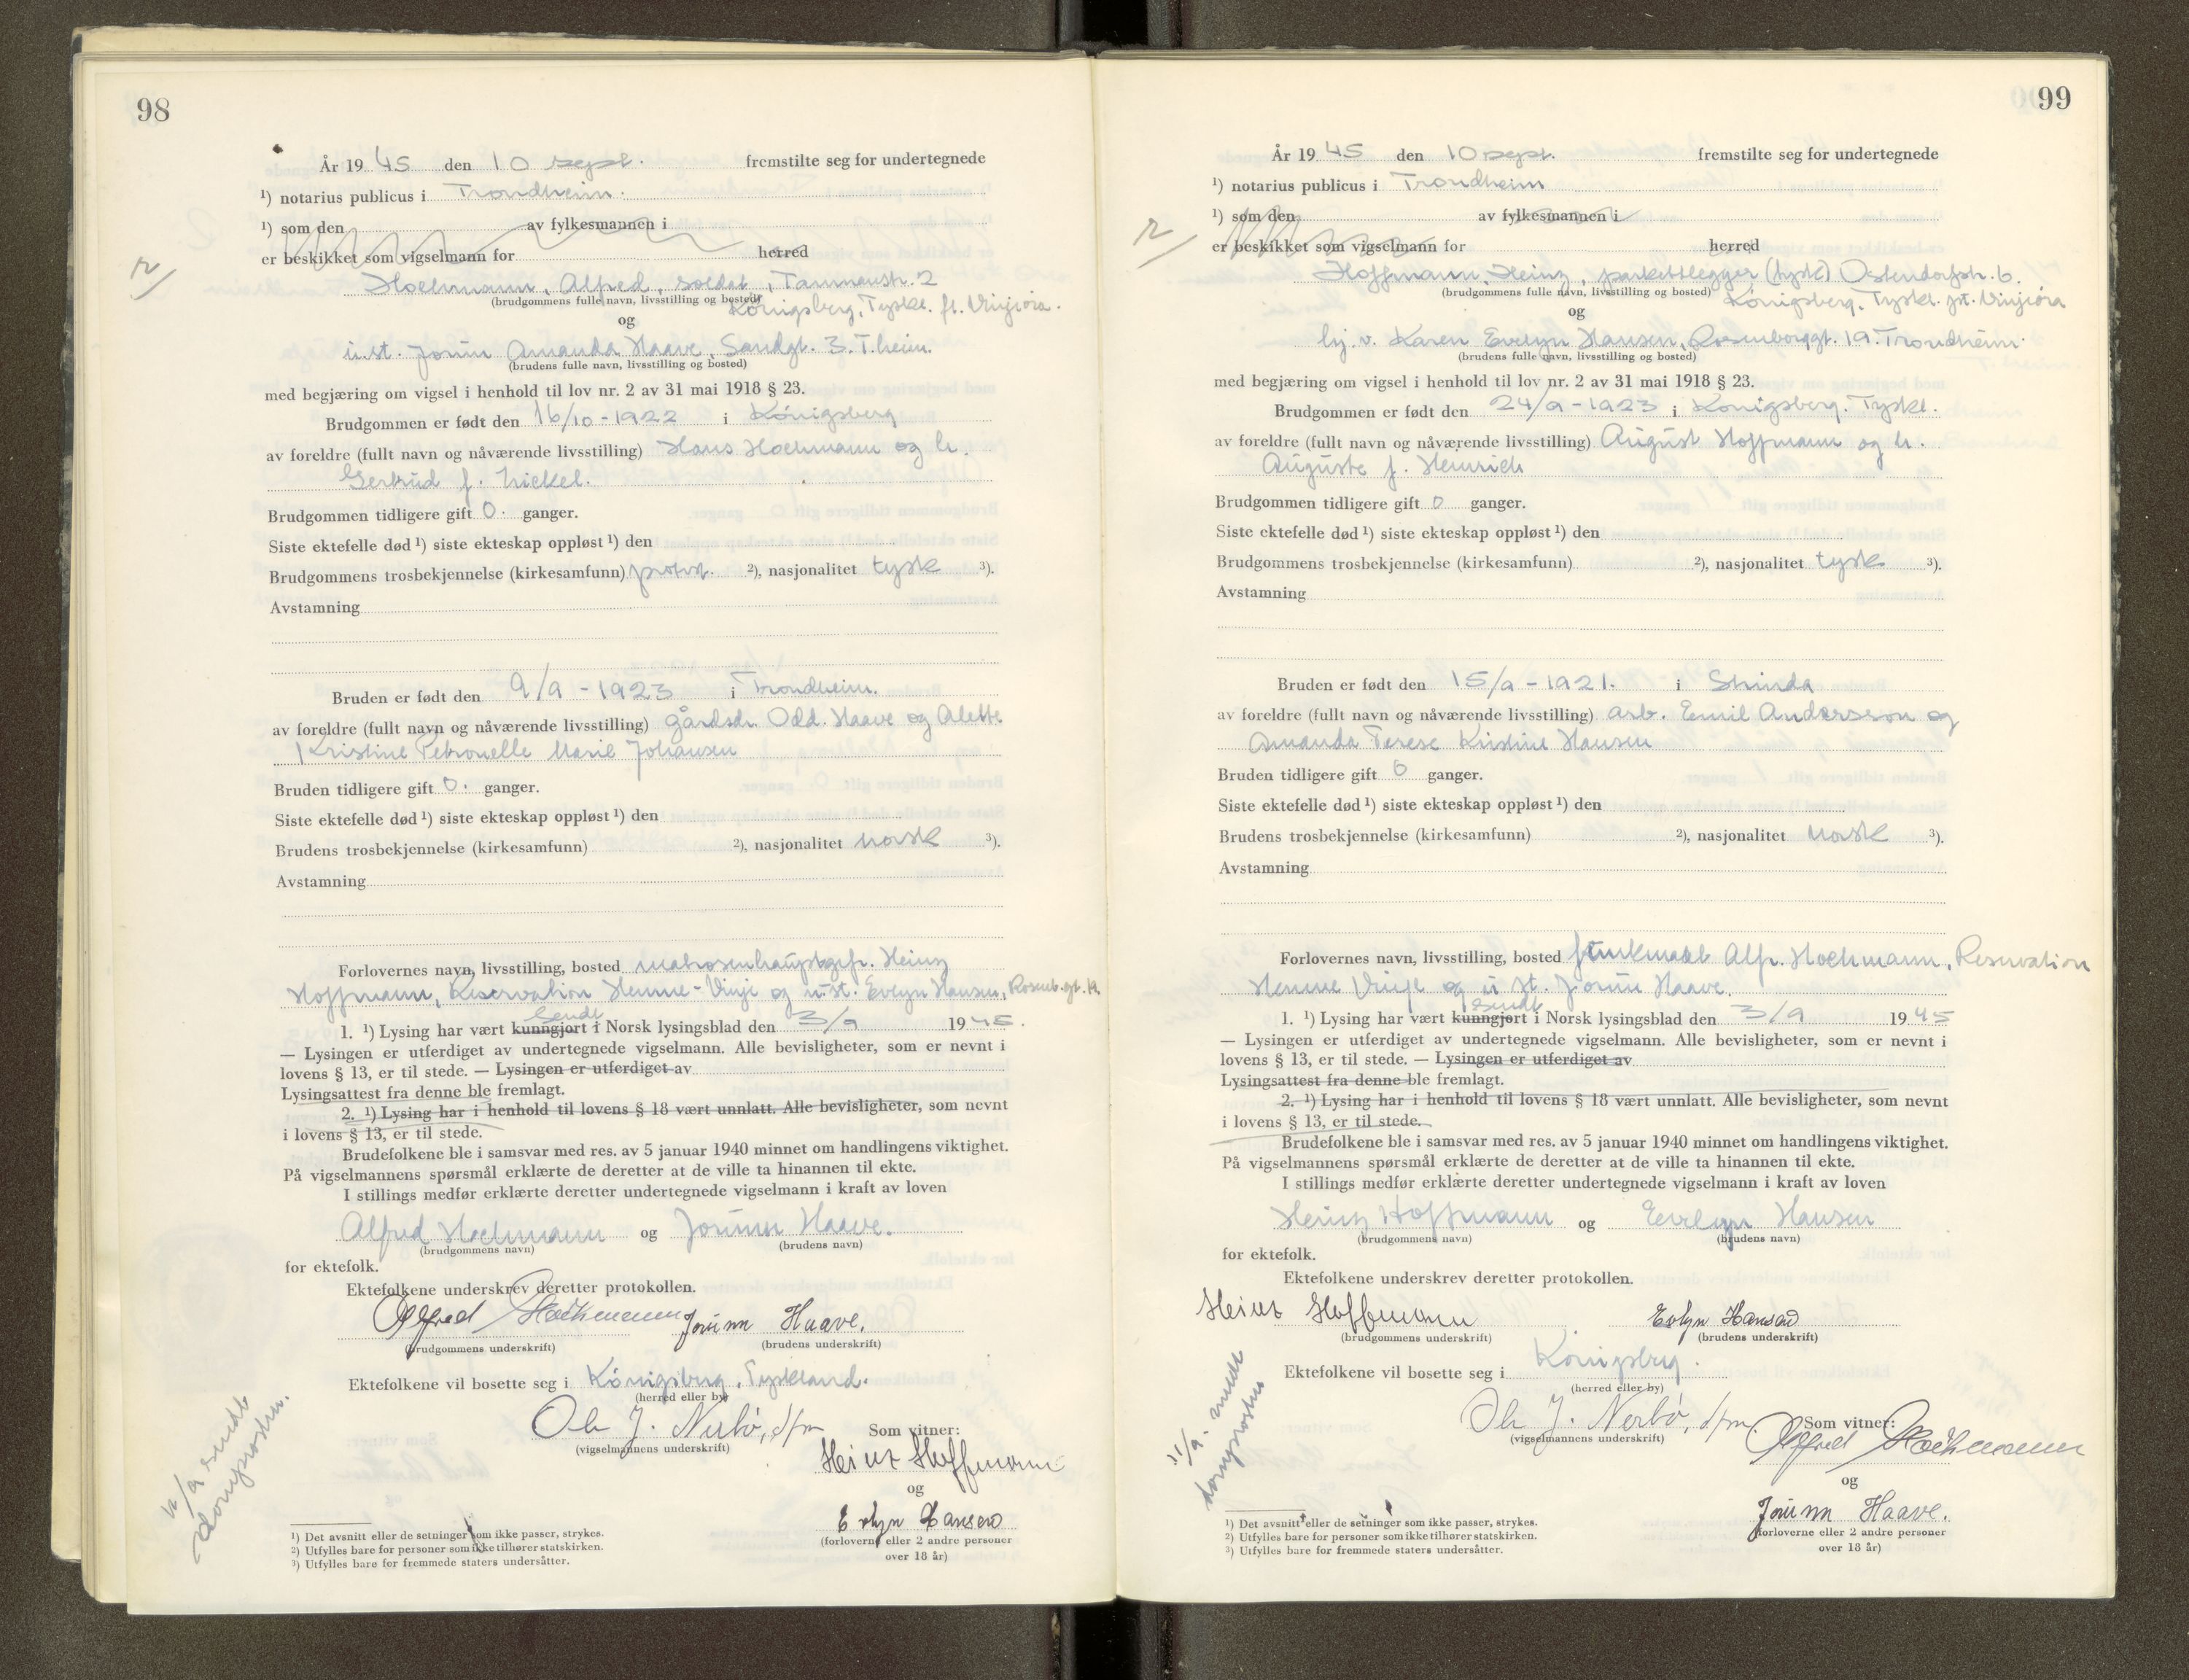 98
År 1945 den 10 sept. fremstilte seg for undertegnede
¹) notarius publicus i Trondheim.
¹) som den av fylkesmannen i
er beskikket som vigselmann for herred
Hochmann, Alfred, soldat, 2
(brudgommens fulle navn, livsstilling og bosted)
Königsberg, Tyskl. pt. Vinjeöra.
og
u.st. Jorun Amanda Haave, Sandgt. 3. T.heim.
(brudens fulle navn, livsstilling og bosted)
med begjæring om vigsel i henhold til lov nr. 2 av 31 mai 1918 § 23.
Brudgommen er født den 16/10-1922 i Königsberg
av foreldre (fullt navn og nåværende livsstilling) Hans Hochmann og h.
Gertrud f. Nickel.
Brudgommen tidligere gift 0. ganger.
Siste ektefelle død ¹) siste ekteskap oppløst ¹) den
Brudgommens trosbekjennelse (kirkesamfunn) ²), nasjonalitet tysk ³).
Avstamning
Bruden er født den 9/9-1923 i Trondheim.
av foreldre (fullt navn og nåværende livsstilling) gårdsdr. Odd Haave og Alette
Kristine Petronelle Marie Johansen
Bruden tidligere gift 0. ganger.
Siste ektefelle død ¹) siste ekteskap oppløst ¹) den
Brudens trosbekjennelse (kirkesamfunn) ²), nasjonalitet norsk ³).
Avstamning
Forlovernes navn, livsstilling, bosted matrosenhauptgefr. Heinz
Hoffmann, Reservation Hemne-Vinje og u.st. Evelyn Hansen, Rosenb.gt. 19.
sendt
1. ¹) Lysing har vært kunngjort i Norsk lysingsblad den 3/9 1945.
— Lysingen er utferdiget av undertegnede vigselmann. Alle bevisligheter, som er nevnt i
lovens § 13, er til stede. — Lysingen er utferdiget av
Lysingsattest fra denne ble fremlagt.
2. ¹) Lysing har i henhold til lovens § 18 vært unnlatt. Alle bevisligheter, som nevnt
i lovens § 13, er til stede.
Brudefolkene ble i samsvar med res. av 5 januar 1940 minnet om handlingens viktighet.
På vigselmannens spørsmål erklærte de deretter at de ville ta hinannen til ekte.
I stillings medfør erklærte deretter undertegnede vigselmann i kraft av loven
Alfred Hochmann og Jorunn Haave.
(brudgommens navn) (brudens navn)
for ektefolk.
Ektefolkene underskrev deretter protokollen.
Alfred Hochmann Jorunn Haave.
(brudgommens underskrift) (brudens underskrift)
Ektefolkene vil bosette seg i Königsberg, Tyskland.
(herred eller by)
Ole J. Nerbö, dfm Som vitner:
(vigselmannens underskrift)
Heinz Hoffmann
og
Evelyn Hansen
(forloverne eller 2 andre personer
over 18 år)
11/9 sendt
domprosten.
¹) Det avsnitt eller de setninger som ikke passer, strykes.
²) Utfylles bare for personer som ikke tilhører statskirken.
³) Utfylles bare for fremmede staters undersåtter.
99
År 1945 den 10 sept. fremstilte seg for undertegnede
¹) notarius publicus i Trondheim
¹) som den av fylkesmannen i
er beskikket som vigselmann for herred
Hoffmann, Heinz, parkettlegger (tysk) Ostendorfstr. 6.
(brudgommens fulle navn, livsstilling og bosted)
Königsberg, Tyskl. pt. Vinjeöra
og
hj. v. Karen Evelyn Hansen, Rosenborggt. 19. Trondheim.
(brudens fulle navn, livsstilling og bosted)
med begjæring om vigsel i henhold til lov nr. 2 av 31 mai 1918 § 23.
Brudgommen er født den 24/9-1923 i Königsberg, Tyskl.
av foreldre (fullt navn og nåværende livsstilling) August Hoffmann og h.
Auguste f. Heinrich
Brudgommen tidligere gift 0 ganger.
Siste ektefelle død ¹) siste ekteskap oppløst ¹) den
Brudgommens trosbekjennelse (kirkesamfunn) ²), nasjonalitet tysk ³).
Avstamning
Bruden er født den 15/9-1921. i Strinda
av foreldre (fullt navn og nåværende livsstilling) arb. Emil Andersson og
Amanda Terese Kristine Hansen
Bruden tidligere gift 0 ganger.
Siste ektefelle død ¹) siste ekteskap oppløst ¹) den
Brudens trosbekjennelse (kirkesamfunn) ²), nasjonalitet norsk ³).
Avstamning
Forlovernes navn, livsstilling, bosted Alfr. Hochmann, Reservation
Hemne Vinje og u.st. Jorun Haave.
sendt
1. ¹) Lysing har vært kunngjort i Norsk lysingsblad den 3/9 1945
— Lysingen er utferdiget av undertegnede vigselmann. Alle bevisligheter, som er nevnt i
lovens § 13, er til stede. — Lysingen er utferdiget av
Lysingsattest fra denne ble fremlagt.
2. ¹) Lysing har i henhold til lovens § 18 vært unnlatt. Alle bevisligheter, som nevnt
i lovens § 13, er til stede.
Brudefolkene ble i samsvar med res. av 5 januar 1940 minnet om handlingens viktighet.
På vigselmannens spørsmål erklærte de deretter at de ville ta hinannen til ekte.
I stillings medfør erklærte deretter undertegnede vigselmann i kraft av loven
Heinz Hoffmann og Evelyn Hansen
(brudgommens navn) (brudens navn)
for ektefolk.
Ektefolkene underskrev deretter protokollen.
Heinz Hoffmann Evelyn Hansen
(brudgommens underskrift) (brudens underskrift)
Ektefolkene vil bosette seg i Königsberg.
(herred eller by)
Ole J. Nerbö, dfm. Som vitner:
(vigselmannens underskrift)
Alfred Hochmann
og
Jorunn Haave.
(forloverne eller 2 andre personer
over 18 år)
11/9. sendt
domprosten
¹) Det avsnitt eller de setninger som ikke passer, strykes.
²) Utfylles bare for personer som ikke tilhører statskirken.
³) Utfylles bare for fremmede staters undersåtter.